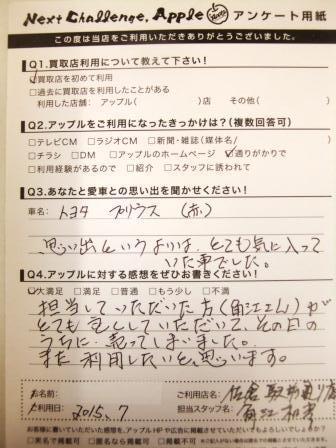 Next Challenge, Apple アンケート用紙
この度は当店をご利用いただきありがとうございました。
Q1.買取店利用について教えて下さい!
☑買取店を初めて利用
□過去に買取店を利用したことがある
利用した店舗: アップル( )店 その他( )
Q2.アップルをご利用になったきっかけは?(複数回答可)
□テレビCM □ラジオCM □新聞・雑誌(媒体名/ )
□チラシ □DM □アップルのホームページ ☑通りがかりで
□利用経験があるので □紹介 □スタッフに誘われて
Q3.あなたと愛車との思い出を聞かせください!
車名: トヨタ プリウス (赤)
思い出というよりは、とても気に入って
いた車でした。
Q4.アップルに対する感想をぜひお書きください!
☑大満足 □満足 □普通 □もう少し □不満
担当していただいた方(
が
とても
としていただいて、その日の
うちに
てしまいました。
また利用したいと思います。
お名前:
ご利用日: 2015. 7
ご利用店名: 佐倉
通り店
担当スタッフ名:
お客様に書いていただいた感想を、アップルHPや広告に掲載させていただいてもよろしいでしょうか?
□実名で掲載可 □匿名なら掲載可 □イニシャルなら掲載可 □掲載不可